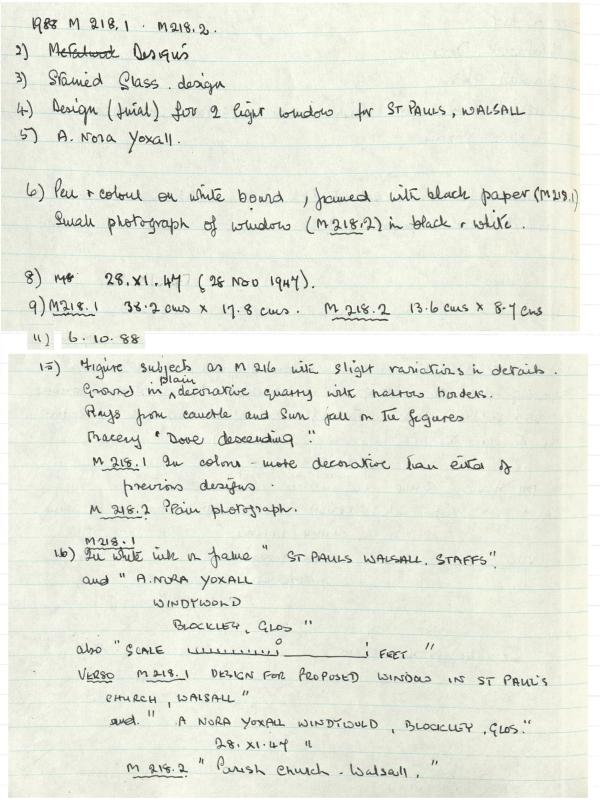 1988 M 218.1 . M218.2.
2) Metalwork Designs
3) Stained Glass . design
4) Design (final) for 2 light window for ST PAULS, WALSALL
5) A. Nora Yoxall.
6) Pen + colour on white board, framed with black paper (M218.1)
Small photograph of window (M218.2) in black + white.
8) 28.XI.47 (28 Nov 1947).
9) M218.1 38.2 cms x 17.8 cms. M 218.2 13.6 cms x 8.7 cms
11) 6.10.88
15) Figure subjects as M 216 with slight variations in details.
Ground in plain decorative quarry with narrow borders.
Rays from candle and Sun fall on the figures
Tracery "Dove descending".
M 218.1 In colour - more decorative than either of
previous designs.
M 218.2 Plain photograph.
M218.1
16) In white ink on frame " ST PAULS WALSALL. STAFFS"
and " A. NORA YOXALL
WINDYWOLD
BLOCKLEY, GLOS "
also "SCALE 0 1 FEET "
VERSO M218.1 DESIGN FOR PROPOSED WINDOW IN ST PAUL'S
CHURCH, WALSALL"
and. " A NORA YOXALL WINDYWOLD, BLOCKLEY, GLOS."
28. XI.47 "
M 218.2 " Parish Church - Walsall. "